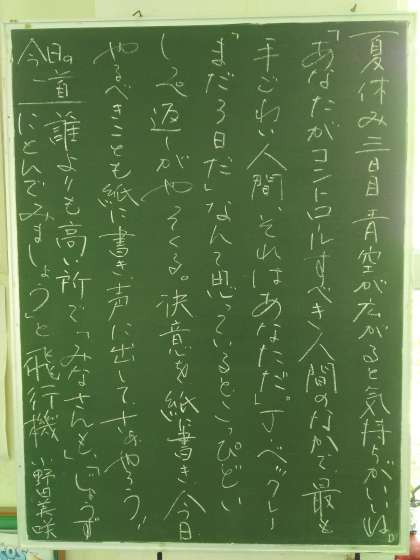 夏休み三日目 青空が広がると気持ちがいいね
「あなたがコントロールすべき人間のなかで、最も
手ごわい人間、それはあなただ。」J・ベックレー
「まだ3日だ」なんて思っているとこっぴどい
しっぺ返しがやってくる。決意を紙に書き、今日
やるべきことも紙に書き、声に出して、さぁやろう
今日の一首 誰よりも高い所で「みなさんも」「じょうず
にとんでみましょう」と飛行機